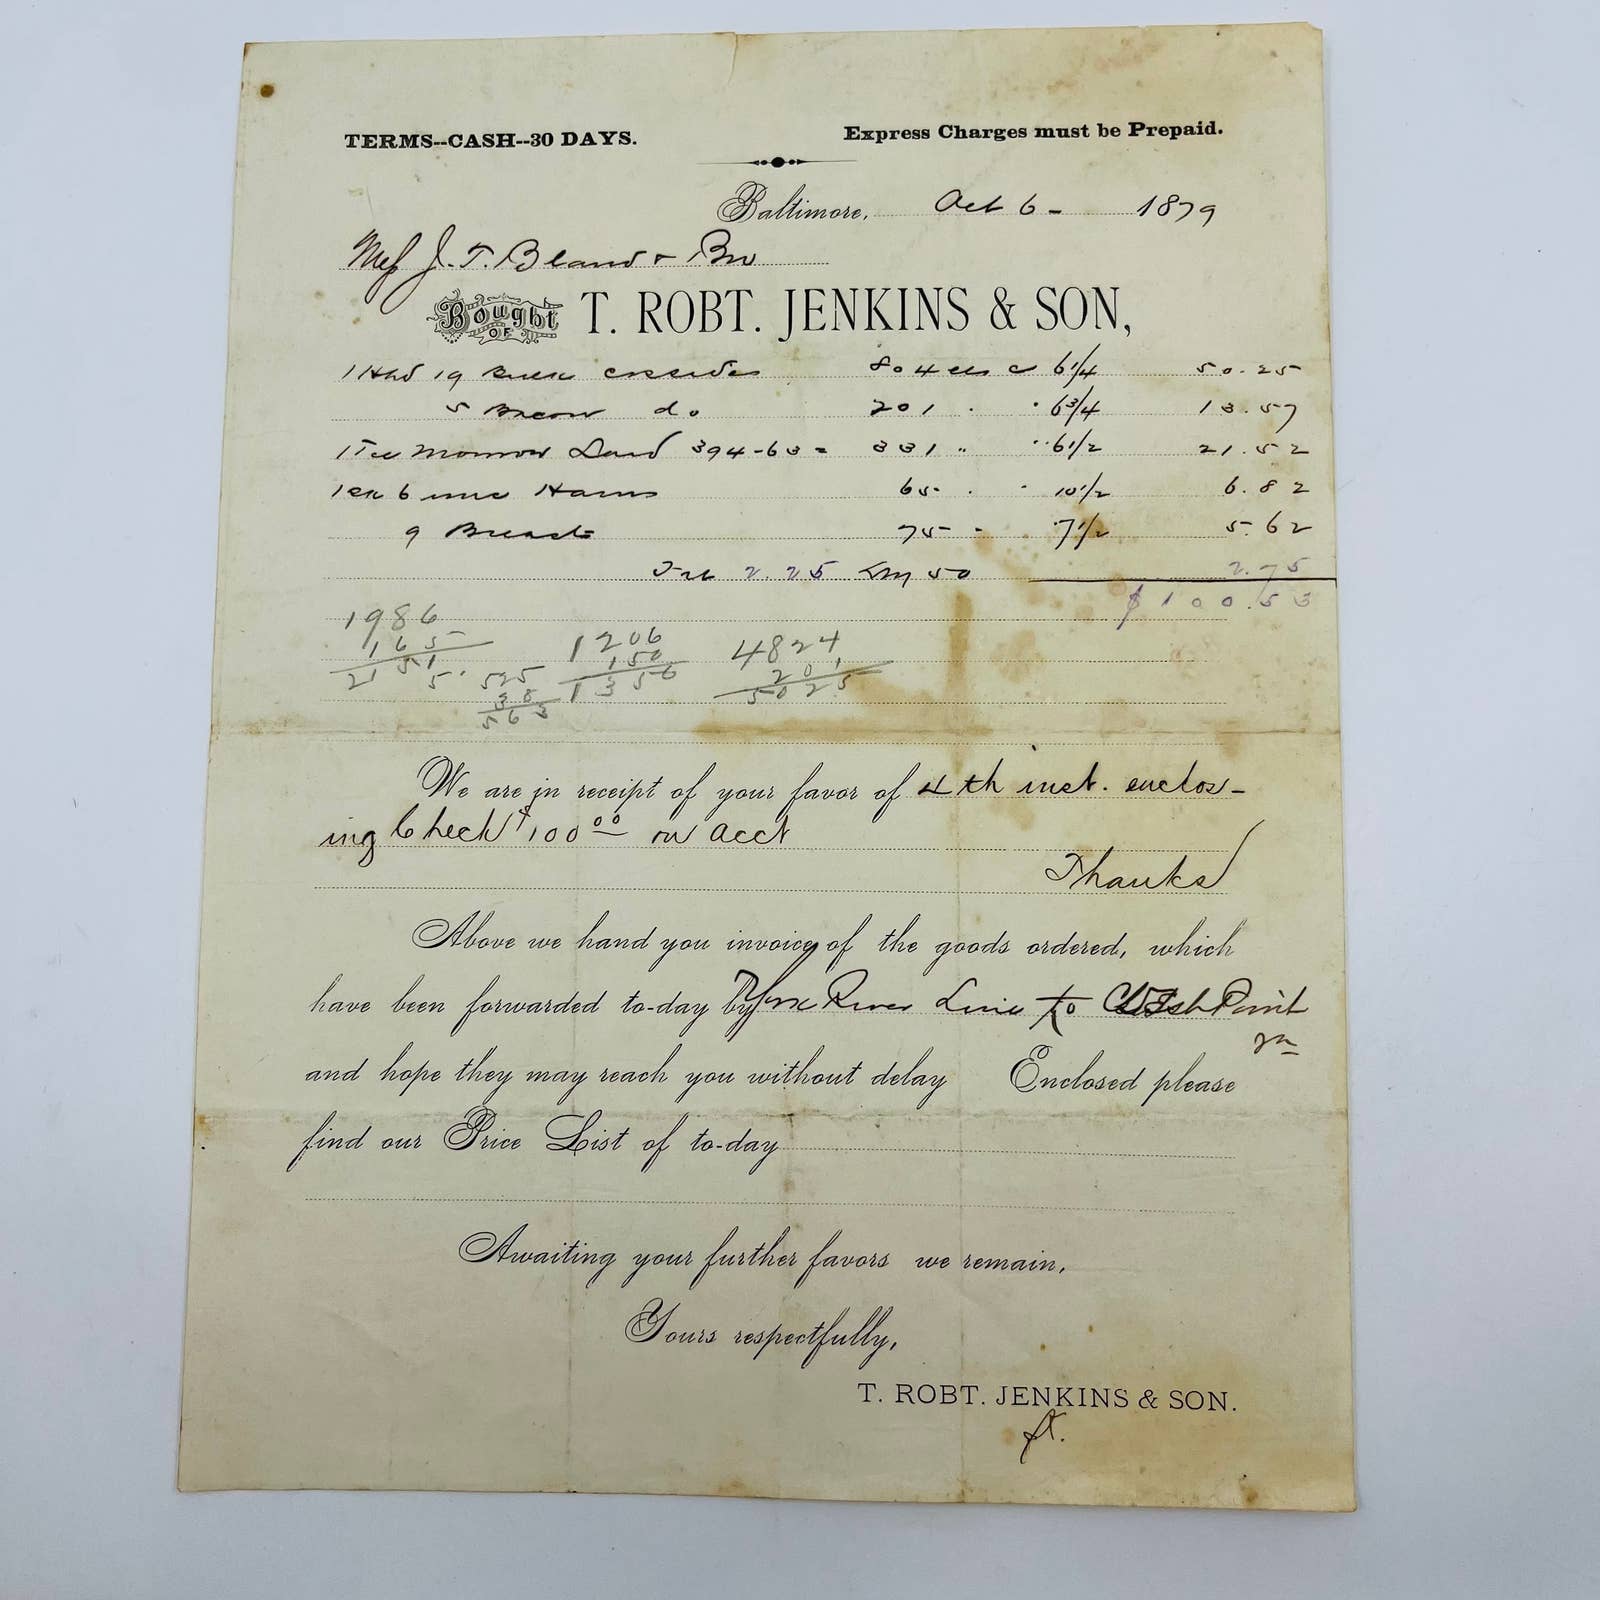 TERMS--CASH--30 DAYS. Express Charges must be Prepaid.
Baltimore, Oct 6- 1879
J. T. Bland & Bro
Bought OF T. ROBT. JENKINS & SON,
1 Hhd 19 Bulk 804 6 1/4 50.25
5 Bacon do 201 " " 6 3/4 13.57
1 Tce Lard 394-63 = 331 " " 6 1/2 21.52
6 Hams 65 " " 10 1/2 6.82
9 Breasts 75 " 7 1/2 5.62
2.25 50 2.75
$100.53
1986 1206 4824
165 150 201
2151 5. 525 1356 5025
38
563
We are in receipt of your favor of 4th inst. enclos-
ing Check $100 00 on acct
Thanks
Above we hand you invoice of the goods ordered, which
have been forwarded to-day by York River Line to Point
and hope they may reach you without delay Enclosed please
find our Price List of to-day
Awaiting your further favors we remain,
Yours respectfully,
T. ROBT. JENKINS & SON.